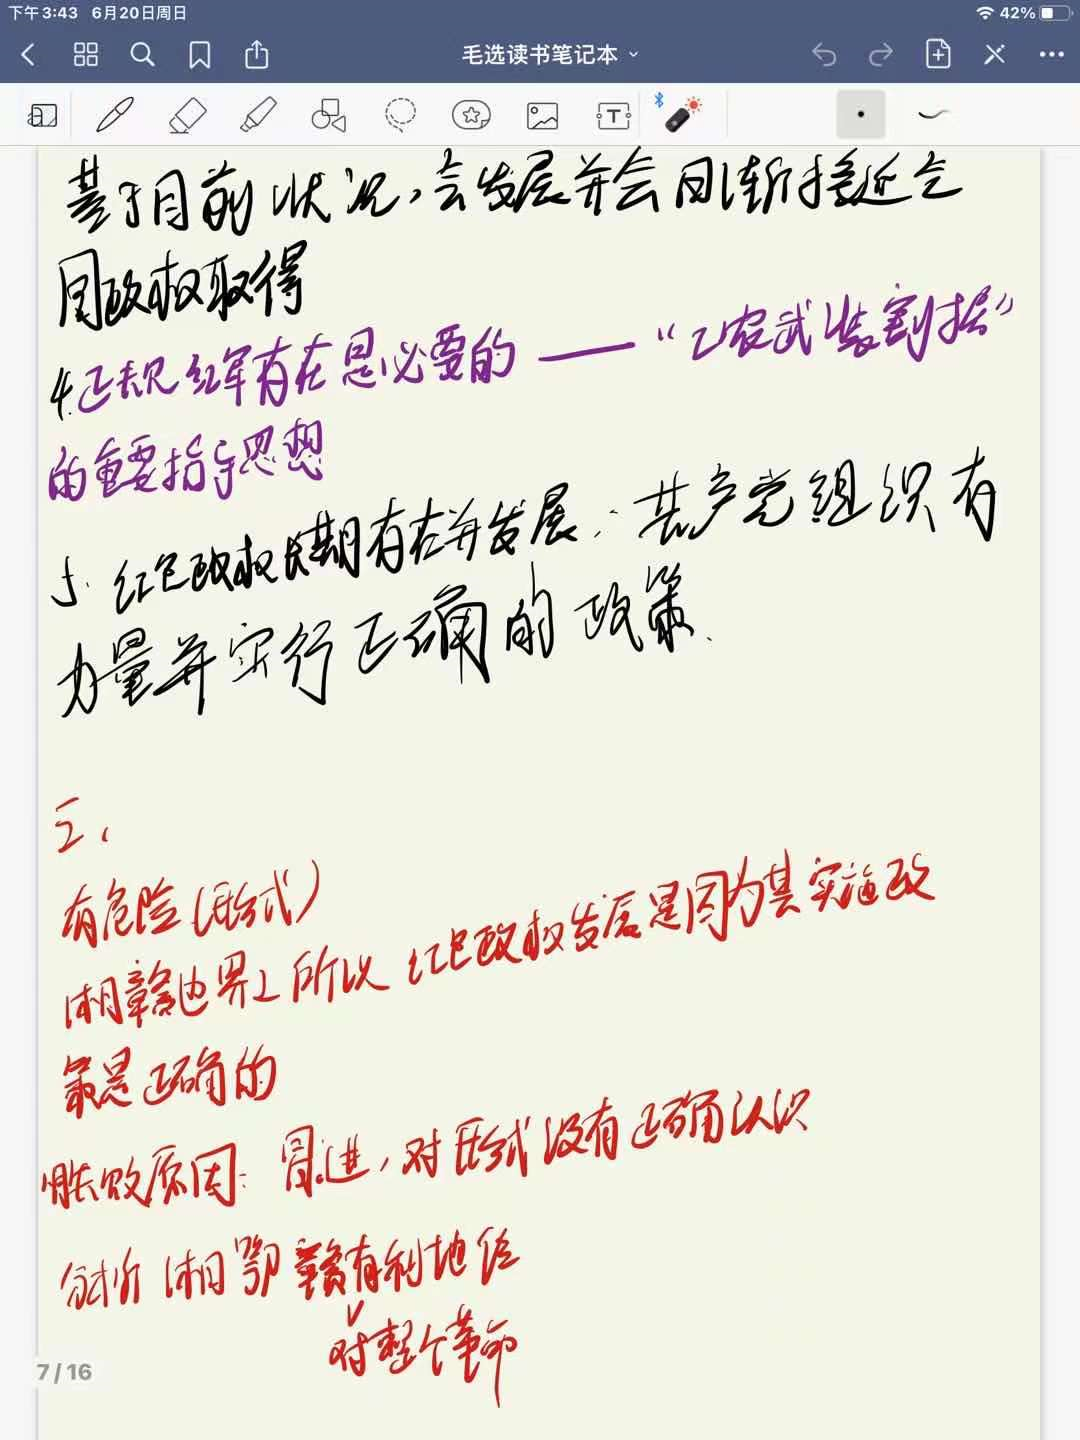 下午3:43 6月20日周日
42%
毛选读书笔记本
基于目前状况，会发展并会日渐接近全
国政权取得
4.正规红军存在是必要的 —— “工农武装割据”
的重要指导思想
5. 红色政权长期存在并发展：共产党组织有
力量并实行正确的政策.
三、
有危险（形式）
湘赣边界上所以红色政权发展是因为其实施政
策是正确的
失败原因：冒进，对形式没有正确认识
分析湘鄂赣有利地位
对整个革命
7/16